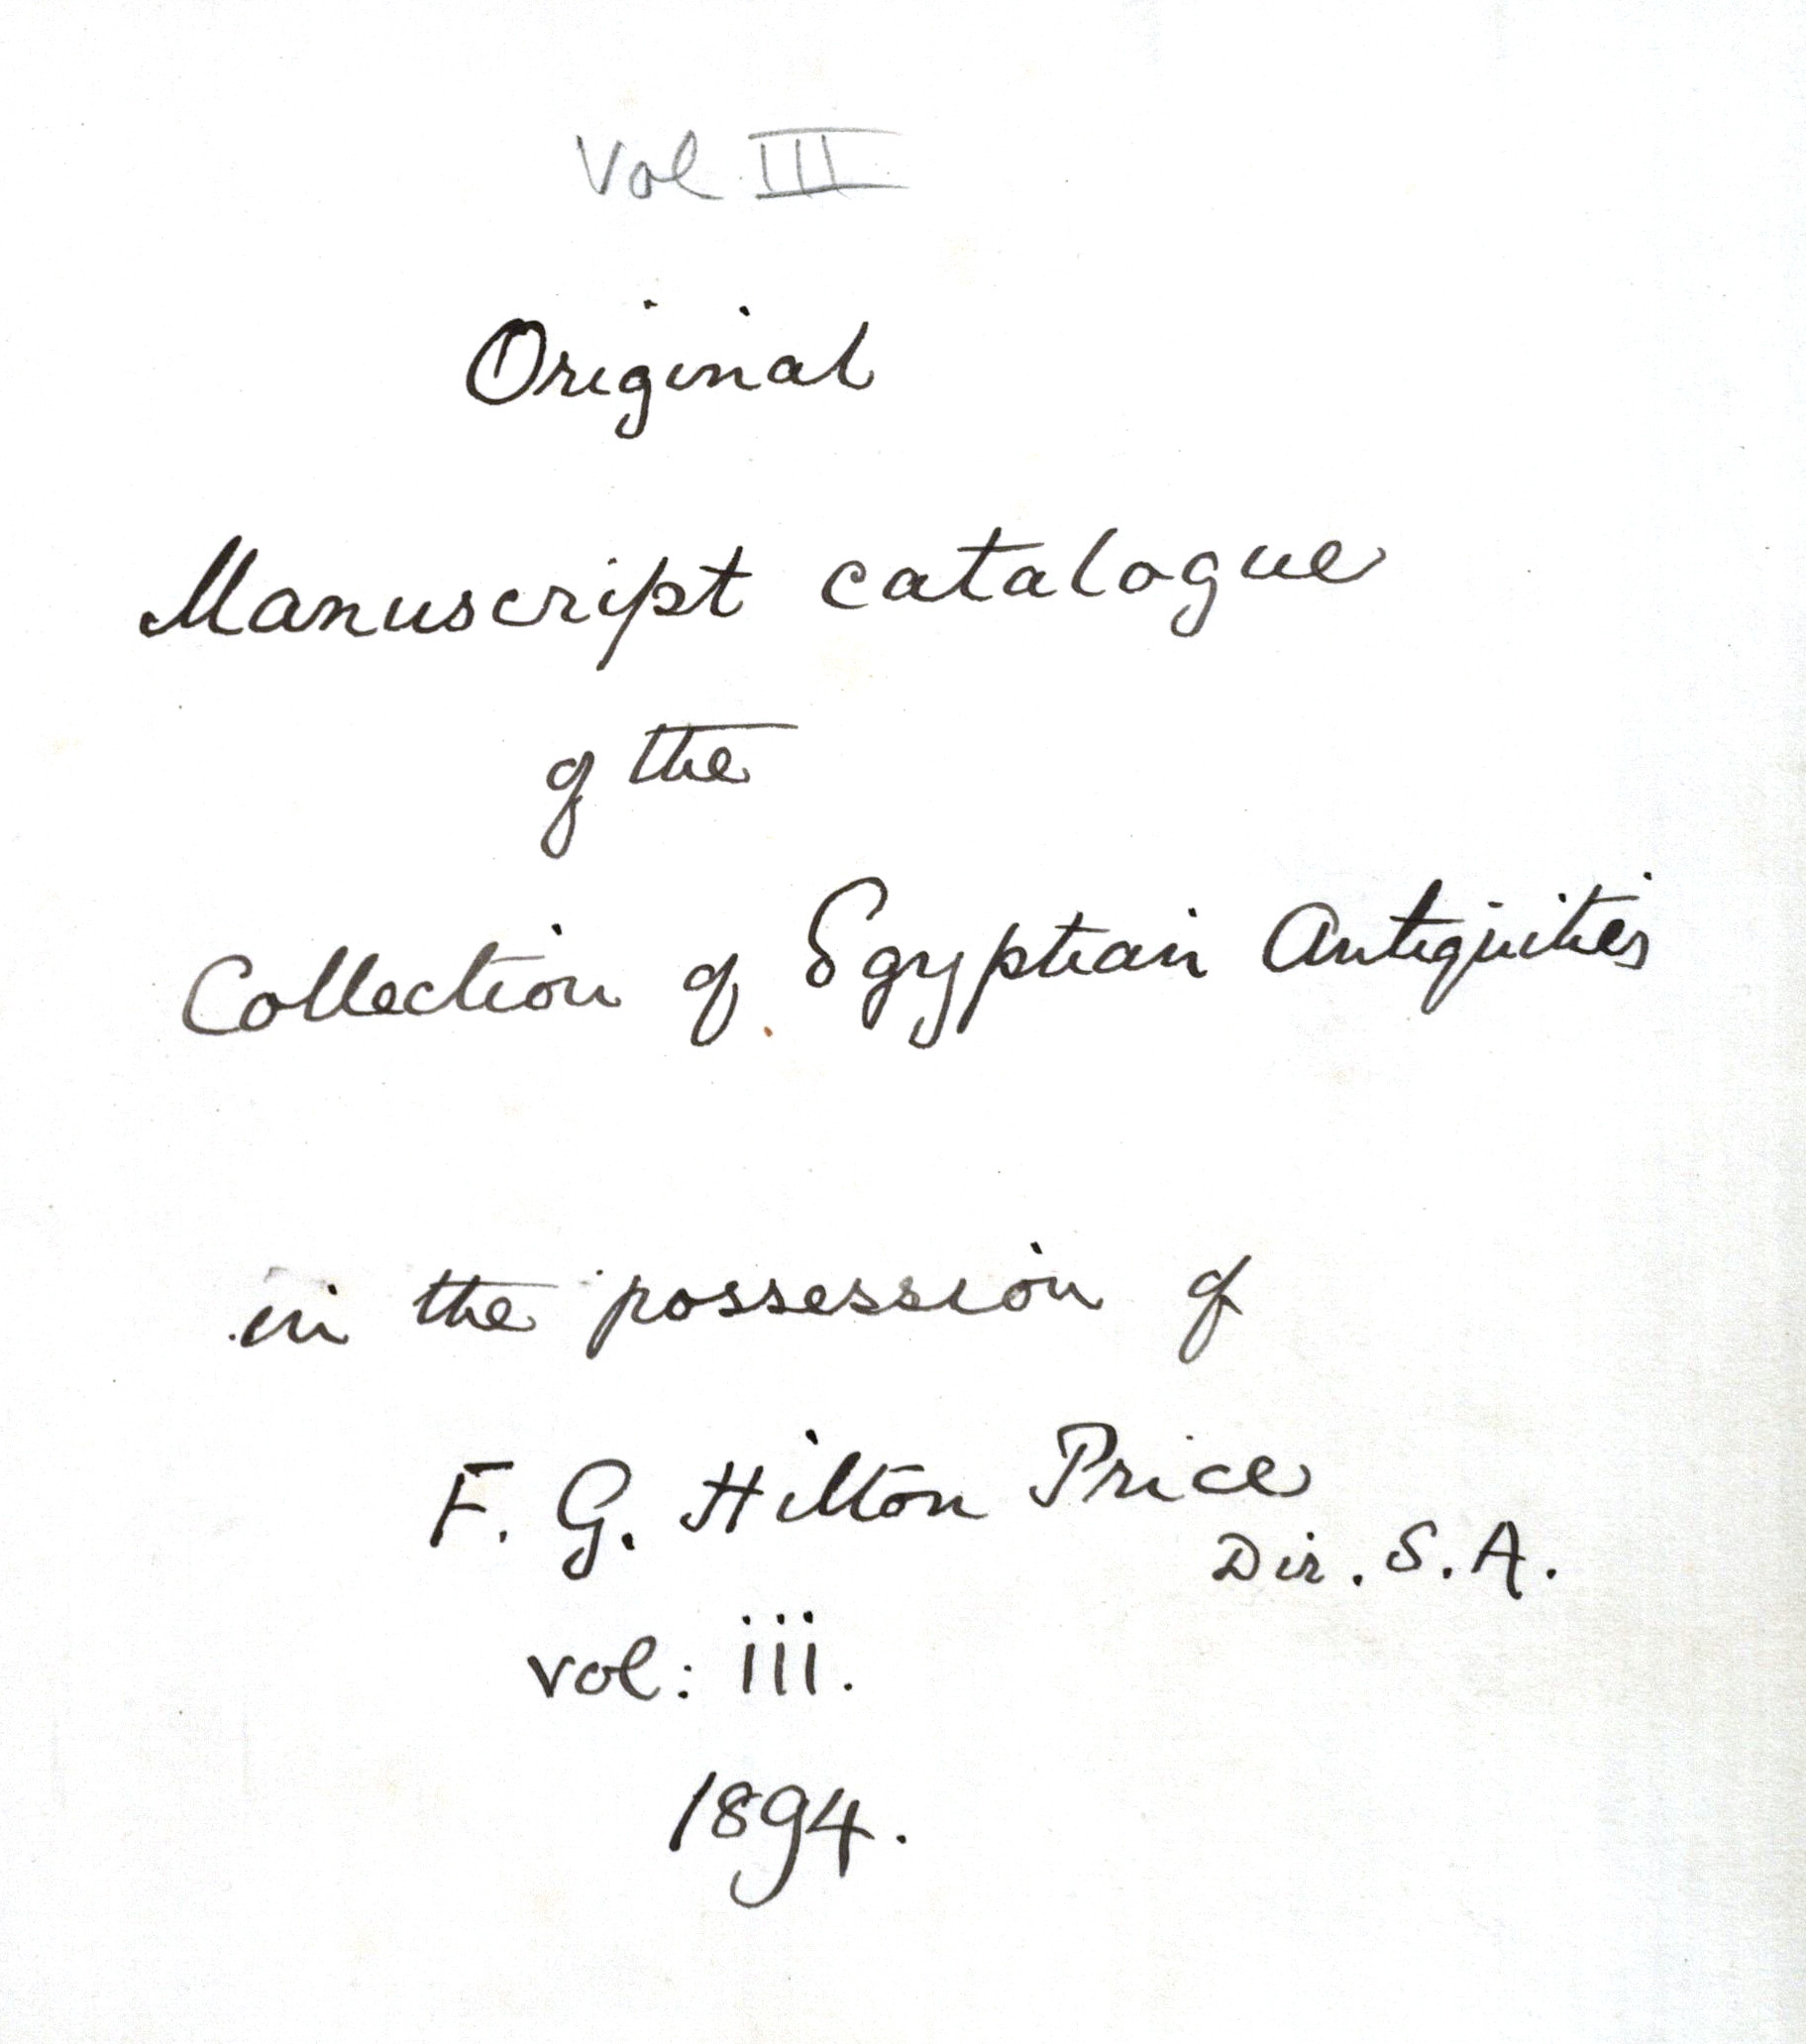 Vol III
Original
Manuscript catalogue
of the
Collection of Egyptian Antiquities
in the possession of
F. G. Hilton Price
Dir. S. A.
vol: iii.
1894.